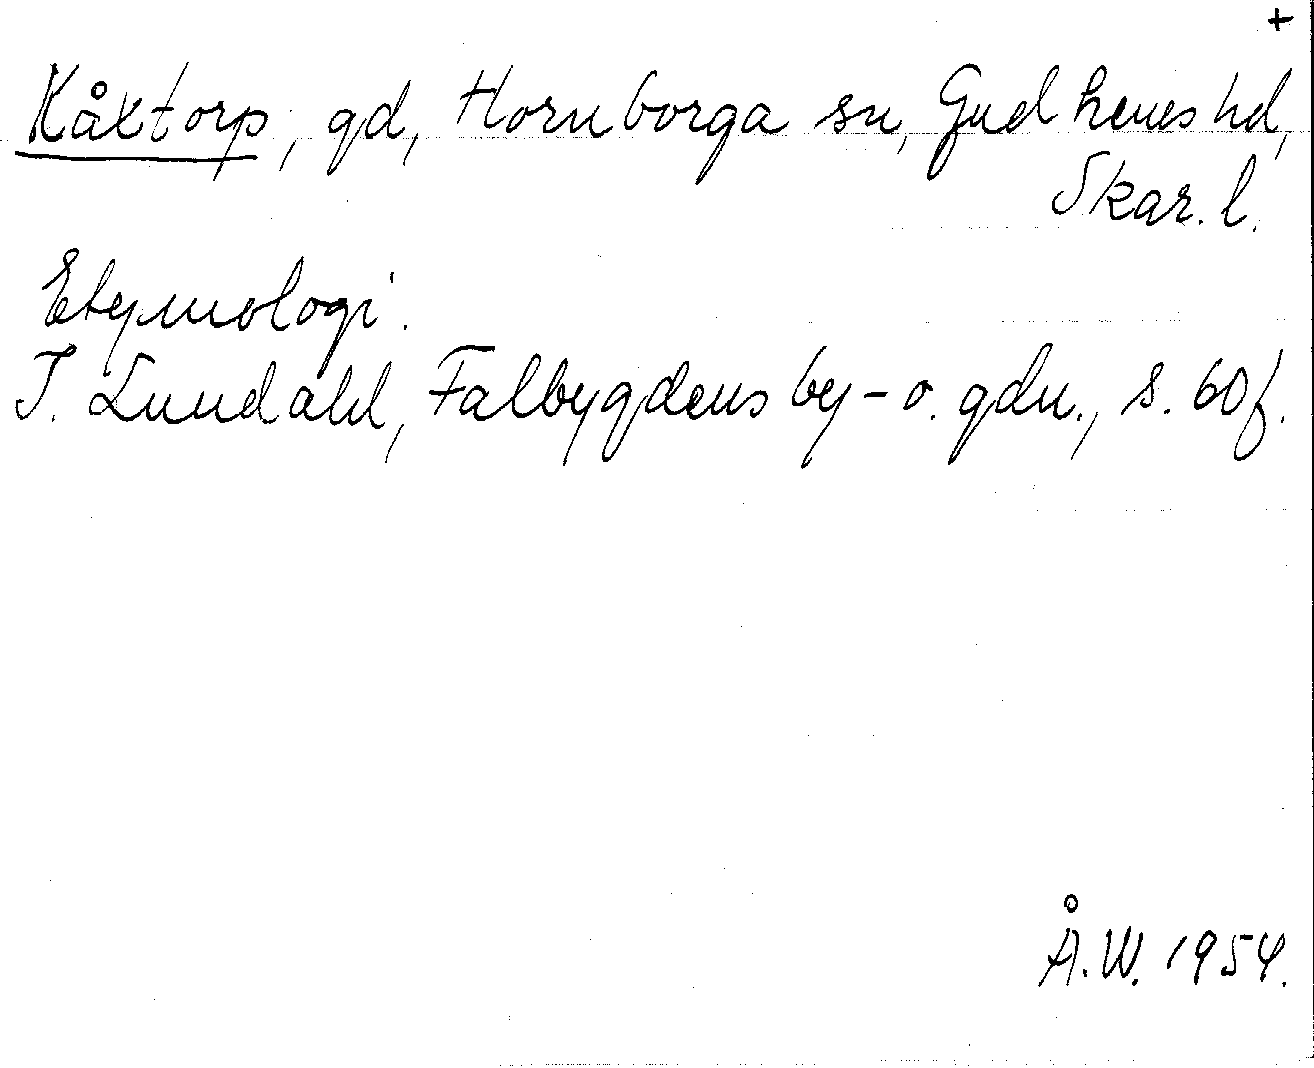 +
Kåxtorp, gd, Hornborga sn, Gudhems hd,
Skar. l.
Etymologi.
I. Lundahl, Falbygdens by- o. gdn., s. 60 f.
Å.W. 1954.